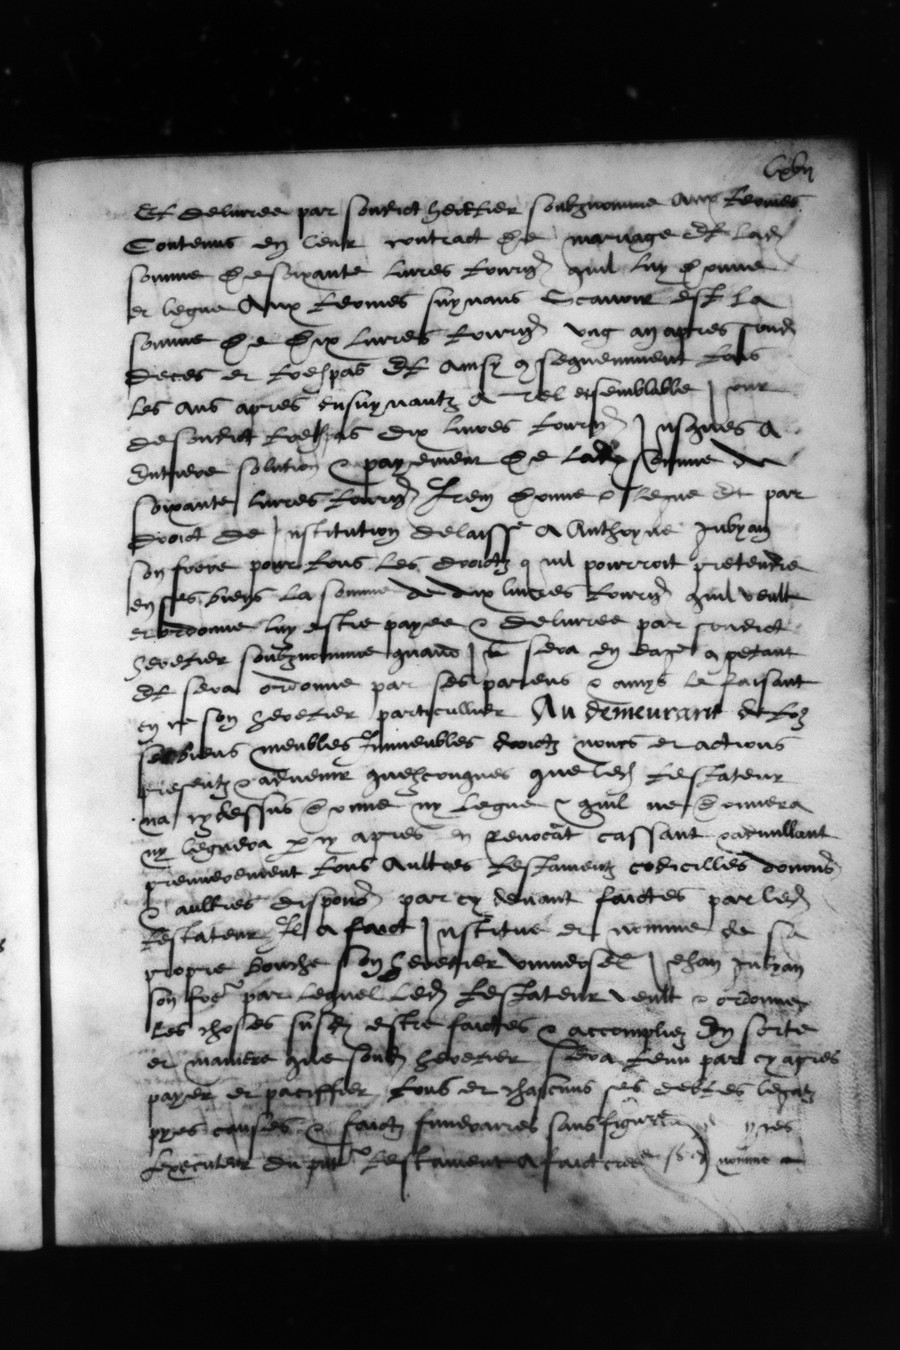 lxvii
Et delivree par sondict heretier soubznomme aux termes
Contenus en leur contract de mariage Et lad
somme de soixante livres tourn quil luy donne
et legue Aux termes suyvans Scavoir est La
somme de dix livres tourn ung an apres sond
deces et trespas Et ainsy consequemment tous
les ans apres ensuyvantz A tel et semblable jour
de sondict trespas dix livres tourn jusques a
entiere solution & payement de lad somme de
soixante livres tourn Item donne & legue et par
droict de Institution delaisse A Anthoyne Jubyan
son frere pour tous les droictz quil pourroit pretendre
en ses biens La somme de dix livres tourn quil veult
et ordonne luy estre payee & delivree par sondict
heretier soubznomme quand il sera en eage competant
Et sera ordonne par ses parens & amys le faisant
en ce son heretier particullier Au demeurant de toz
ses biens meubles Immeubles droictz noms et actions
presentz & advenir quelzconques que led testateur
na cy dessus donne ny legue & quil ne donnera
ny leguera par cy apres en revocat cassant & adnullant
premierement tous Aultres testamentz codicilles donnons
& aultres dispons par cy devant faictes par led
testateur Il a faict Institue et nomme de sa
propre bouche son heretier universel Jehan Jubyan
son frere par lequel Led testateur veult & ordonne
les choses susd estre faictes & accomplies En sorte
et maniere que sond heretier sera tenu par cy apres
payer et paciffier tous et chascuns ses debtes legatz
pyes causes & faictz funeraires sans figure
Executeur du pnt testament A faict cree nomme